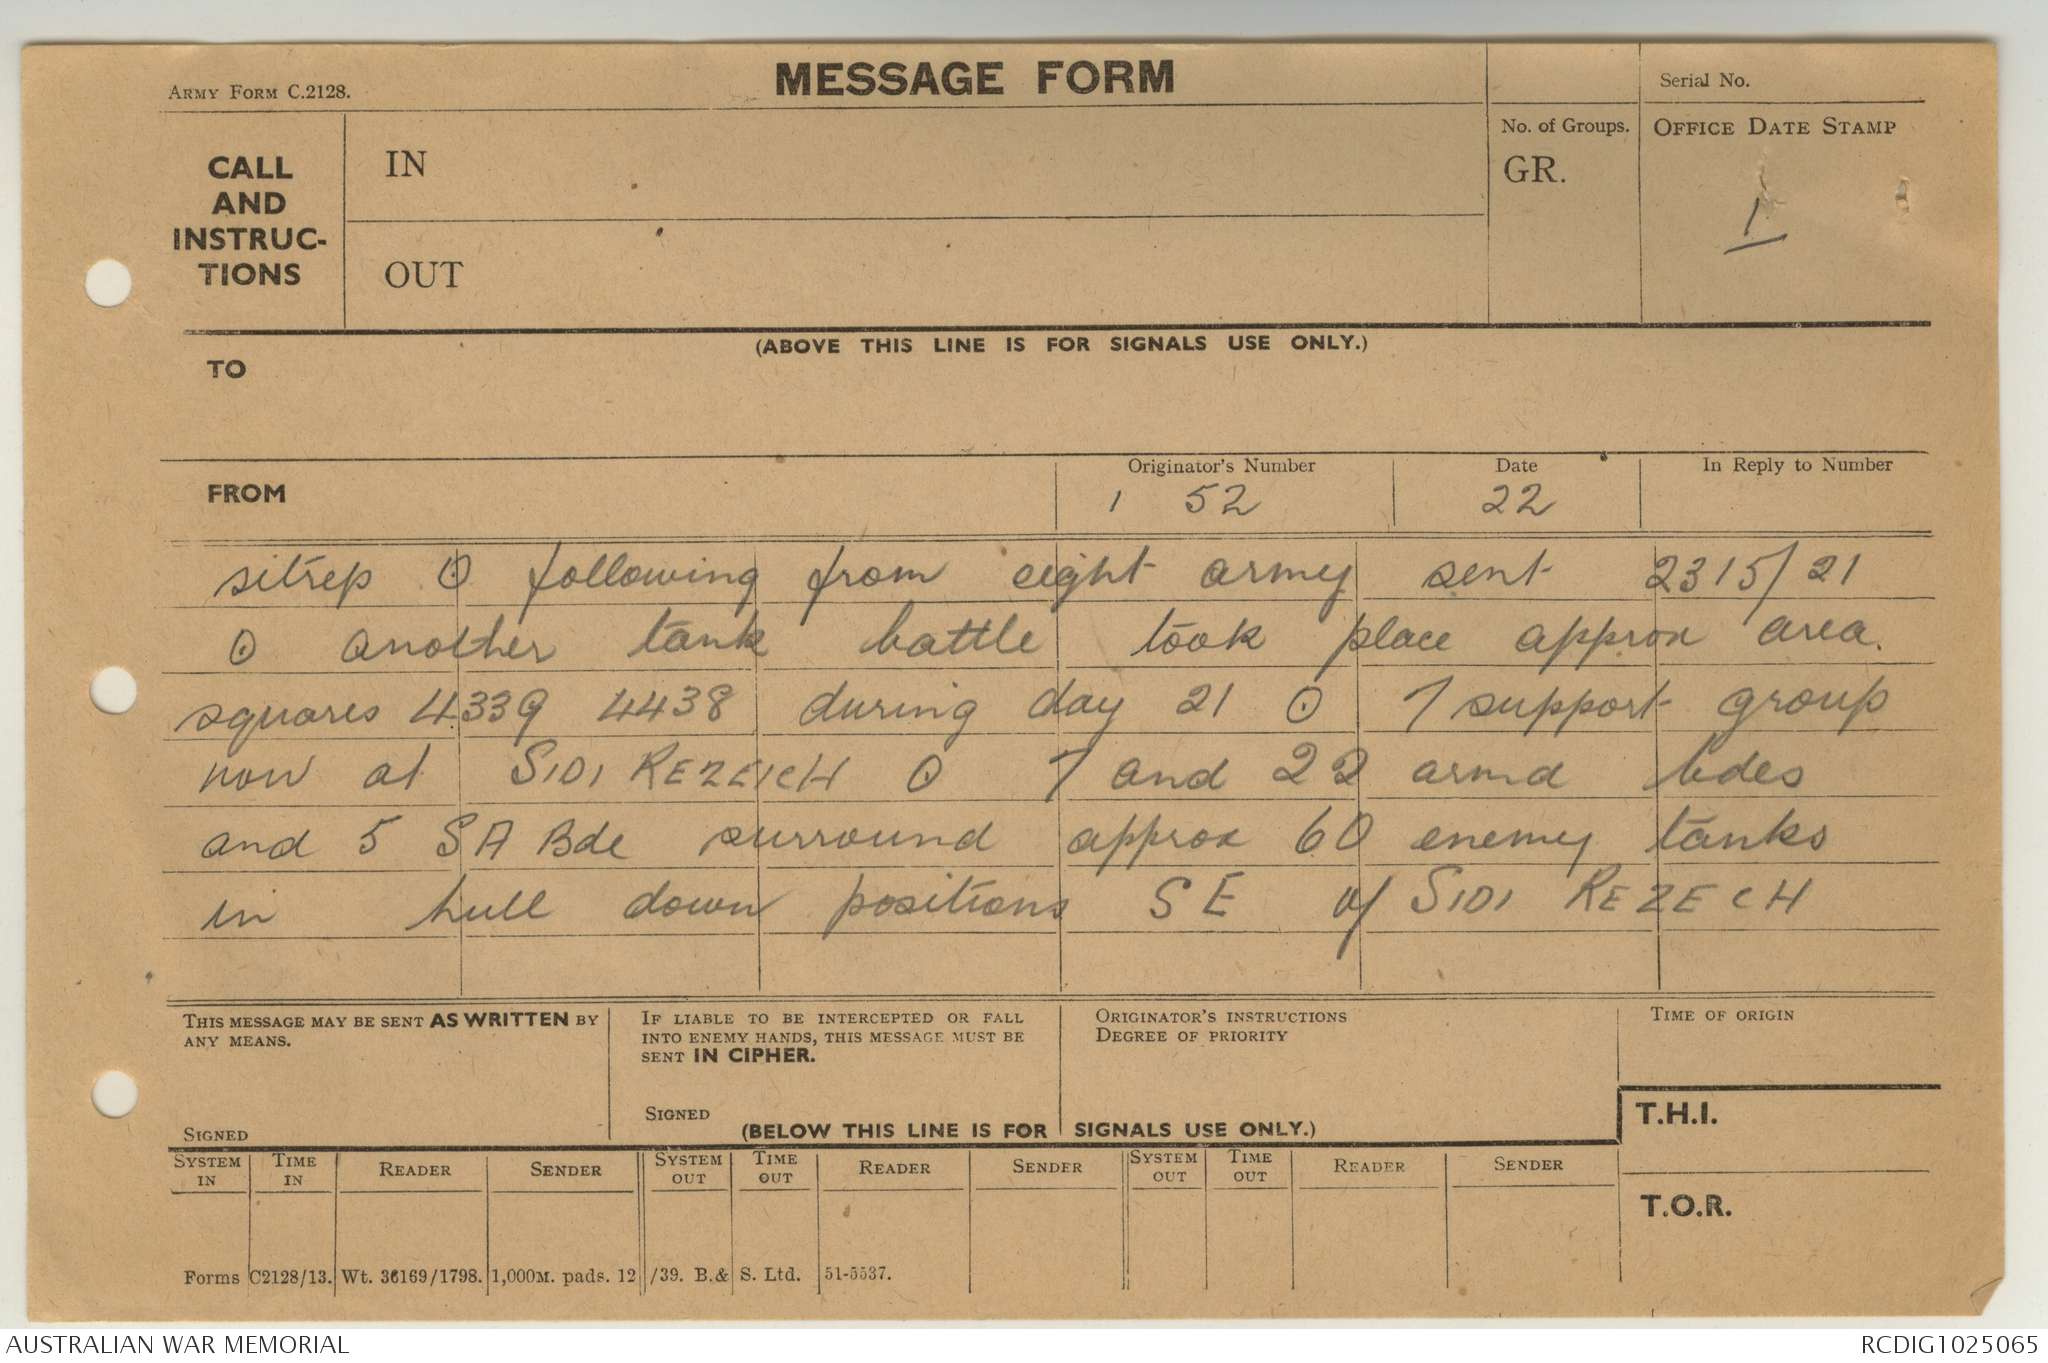 ARMY FORM C.2128.
MESSAGE FORM
Serial No.
CALL
AND
INSTRUC-
TIONS
IN
OUT
No. of Groups.
GR.
OFFICE DATE STAMP
1
(ABOVE THIS LINE IS FOR SIGNALS USE ONLY.)
TO
FROM
Originator's Number
1 52
Date
22
In Reply to Number
sitrep ⊙ following from eight army sent 2315/21
⊙ another tank battle took place approx area.
squares 4339 4438 during day 21 ⊙ 7 support group
now at SIDI REZEICH ⊙ 7 and 22 armd bdes
and 5 SA Bde surround approx 60 enemy tanks
in hull down positions SE of SIDI REZECH
THIS MESSAGE MAY BE SENT AS WRITTEN BY
ANY MEANS.
SIGNED
IF LIABLE TO BE INTERCEPTED OR FALL
INTO ENEMY HANDS, THIS MESSAGE MUST BE
SENT IN CIPHER.
SIGNED
ORIGINATOR'S INSTRUCTIONS
DEGREE OF PRIORITY
TIME OF ORIGIN
(BELOW THIS LINE IS FOR SIGNALS USE ONLY.)
T.H.I.
T.O.R.
SYSTEM IN TIME IN READER SENDER SYSTEM OUT TIME OUT READER SENDER SYSTEM OUT TIME OUT READER SENDER
Forms C2128/13. Wt. 36169/1798. 1,000M. pads. 12/39. B.& S. Ltd. 51-5537.
AUSTRALIAN WAR MEMORIAL
RCDIG1025065